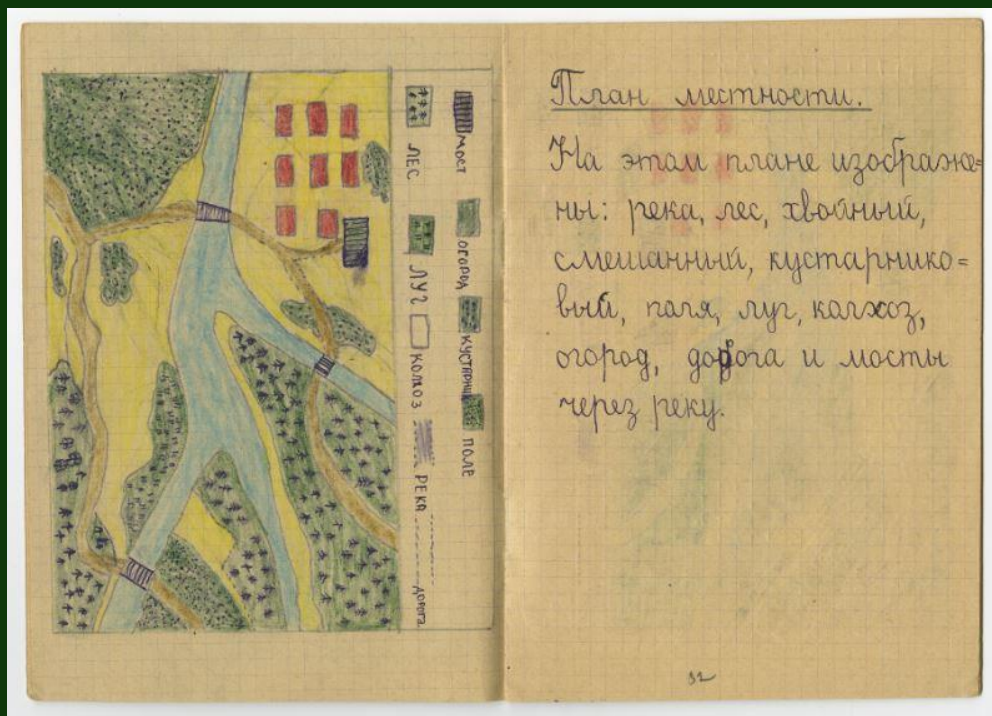 МОСТ ОГОРОД КУСТАРНИК ПОЛЕ
ЛЕС ЛУГ РЕКА ДОРОГА.
План местности.
На этом плане изображе=
ны: река, лес, хвойный,
смешанный, кустарнико=
вый, поля, луг, колхоз,
огород, дорога и мосты
через реку.